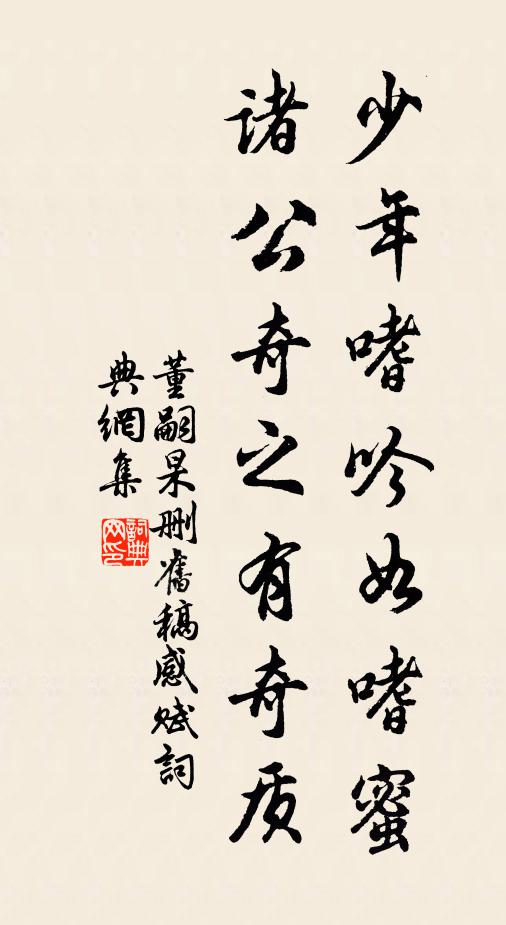 少年嗜吟如嗜蜜
诸公奇之有奇质
董嗣杲删旧稿感赋词
典網集
詞典网印